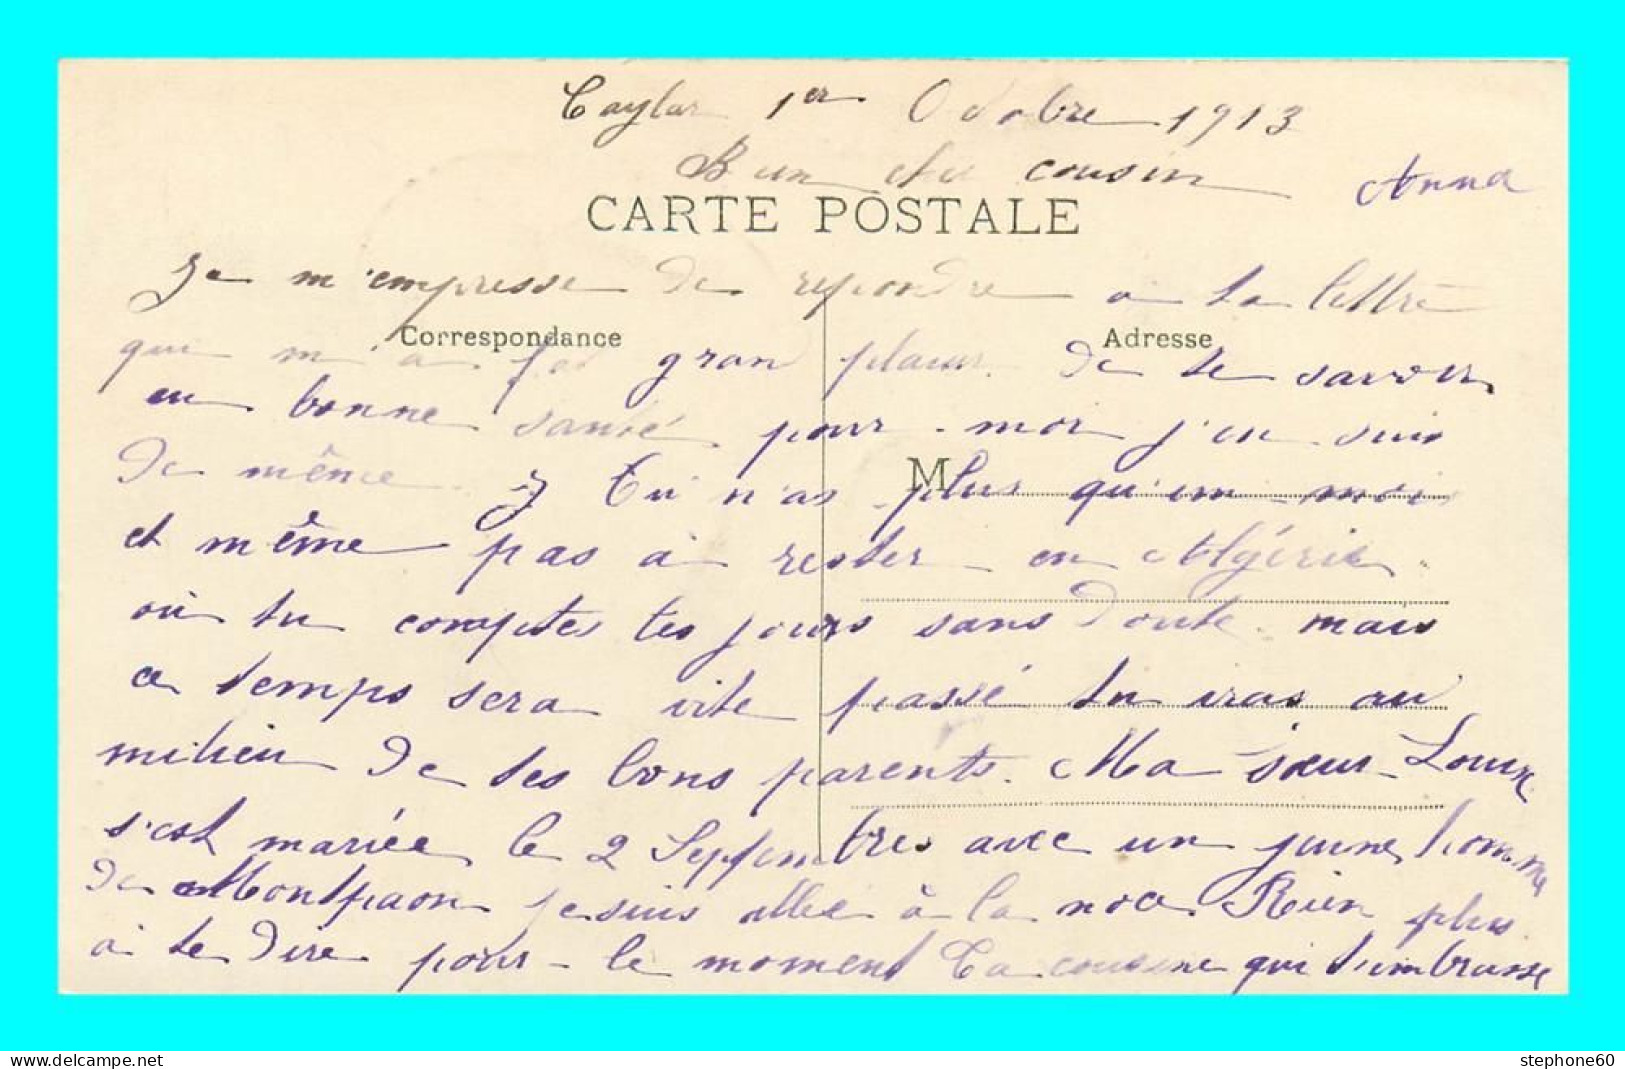 Caylar 1er Octobre 1913
Bien cher cousin Anna
CARTE POSTALE
Je m'empresse de repondre a ta lettre
Correspondance Adresse
qui m'a fai gran plaisir. De te savoir
en bonne santé pour moi j'en suis
de même. Tu n'as plus qu'un mois
M
et même pas à rester en Algérie.
où tu comptes tes jours sans doute. mais
ce temps sera vite passé tu iras au
milieu de tes bons parents. Ma sœur Louise
s'est mariée le 2 Septembres avec un jeune homme
de Montpaon je suis allée à la noce Rien plus
à te dire pour le moment Ta cousine qui t'embrasse
www.delcampe.net
stephone60